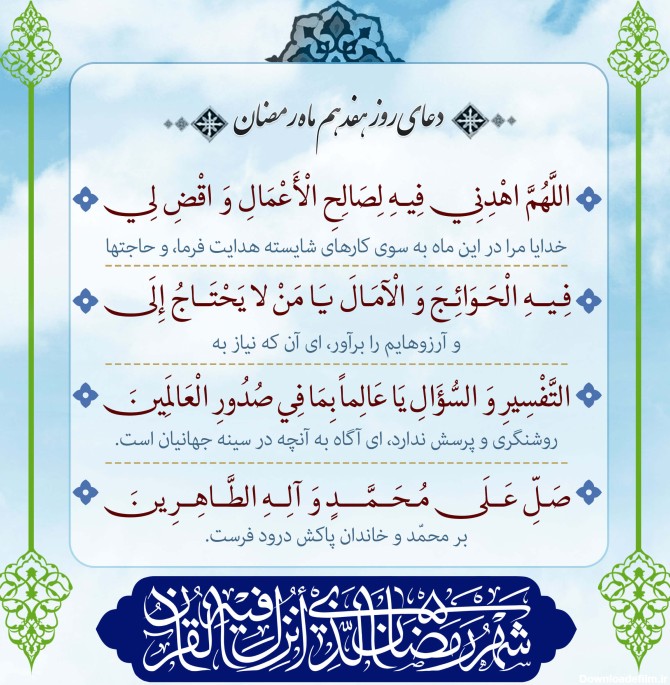 دعای روز هفدهم ماه رمضان
اللَّهُمَّ اهْدِنِي فِيهِ لِصَالِحِ الْأَعْمَالِ وَ اقْضِ لِي
خدایا مرا در این ماه به سوی کارهای شایسته هدایت فرما، و حاجتها
فِيهِ الْحَوَائِجَ وَ الْآمَالَ يَا مَنْ لا يَحْتَاجُ إِلَى
و آرزوهایم را برآور، ای آن که نیاز به
التَّفْسِيرِ وَ السُّؤَالِ يَا عَالِماً بِمَا فِي صُدُورِ الْعَالَمِينَ
روشنگری و پرسش ندارد، ای آگاه به آنچه در سینه جهانیان است.
صَلِّ عَلَى مُحَمَّدٍ وَ آلِهِ الطَّاهِرِينَ
بر محمّد و خاندان پاکش درود فرست.
شهر رمضان الذي أنزل فيه القرآن